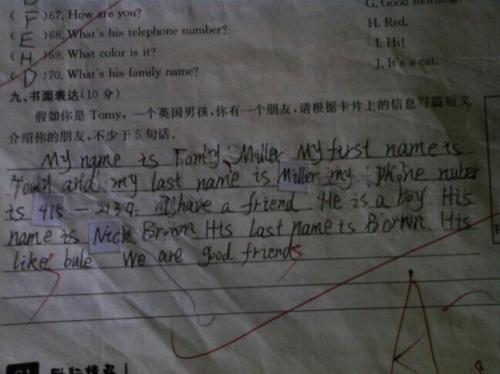 F )67. How are you?
G. Good morning
( E )68. What's his telephone number?
H. Red.
( H )69. What color is it?
I. Hi!
( D )70. What's his family name?
J. It's a cat.
九、书面表达(10分)
假如你是 Tomy,一个英国男孩,你有一个朋友,请根据卡片上的信息写篇短文
介绍你的朋友,不少于5句话。
My name is Tomy Miller My first name is
Tomy and my last name is Miller my phone nuber
is 415-2139. I have a friend. He is a boy. His
name is Nick Brown His last name is Bornn. His
like bule. We are good friends
A